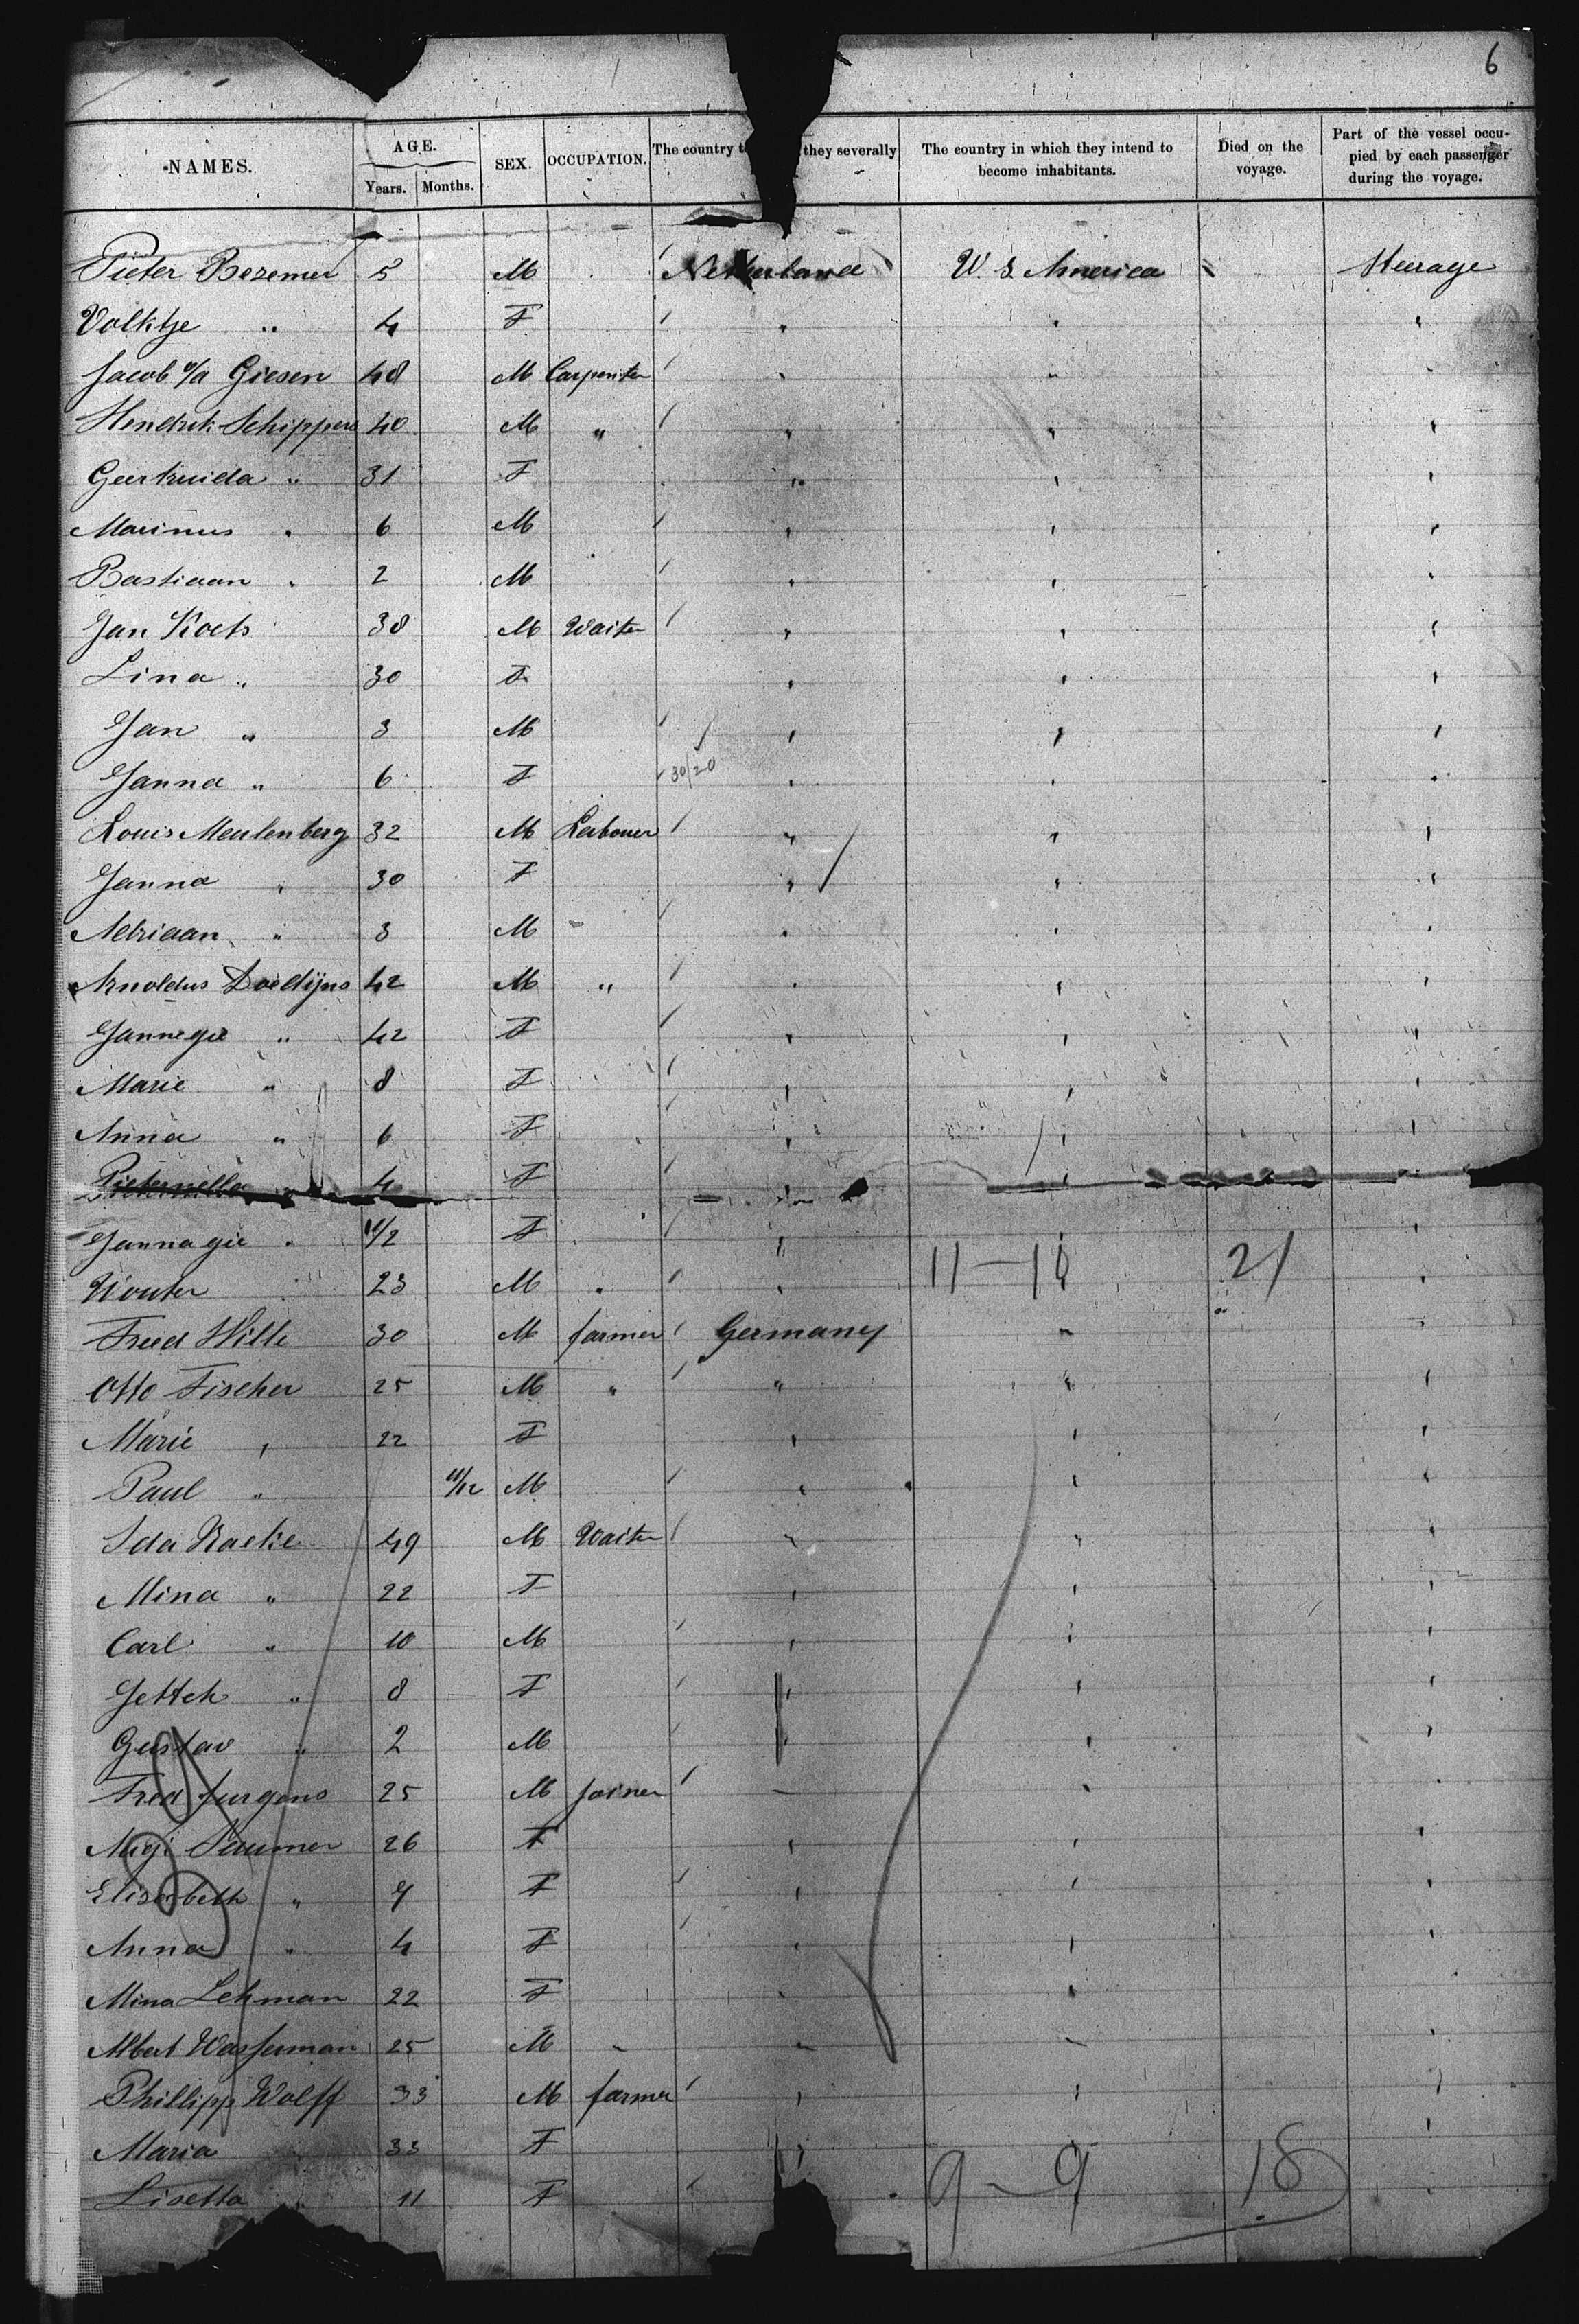 6
NAMES. AGE. Years. Months. SEX. OCCUPATION. The country t they severally The country in which they intend to become inhabitants. Died on the voyage. Part of the vessel occu-pied by each passenger during the voyage.
Pieter Bezemer 5 M Netherland U. S. America Steerage
Volktje " 4 F " " "
Jacob v/d Giesen 48 M Carpenter " " "
Hendrik Schippers 40 M " " " "
Geertruida " 31 F " " "
Marinus " 6 M " " "
Bastiaan " 2 M " " "
Jan Koets 38 M Waiter " " "
Lina " 30 F " " "
Jan " 3 M " " "
Janna " 6 F 30/20 " " "
Louis Meulenberg 32 M Labouer " " "
Janna " 30 F " " "
Adriaan " 3 M " " "
Arnoldus Doedijns 42 M " " " "
Jannegie " 42 F " " "
Marie " 8 F " " "
Anna " 6 F " " "
Pieternella " 4 F " " "
Jannagie " 1/2 F " " "
11 - 10 21
Wouter " 23 M " " " "
Fred Hille 30 M farmer Germany " "
Otto Fischer 25 M " " " "
Marie " 22 F " " "
Paul " 11/12 M " " "
Ida 49 M Waiter " " "
Mina " 22 F " " "
Carl " 10 M " " "
Gustav " 2 M " " "
8 F " " "
Fred Jurgens 25 M Joiner " " "
26 F " " "
Elisabeth " 7 F " " "
Anna " 4 F " " "
Mina Lehman 22 F " " "
Albert Wasserman 25 M " " " "
Phillipp Wolff 33 M farmer " " "
Maria " 33 F " " "
9 - 9 18
Lisetta " 11 F " "